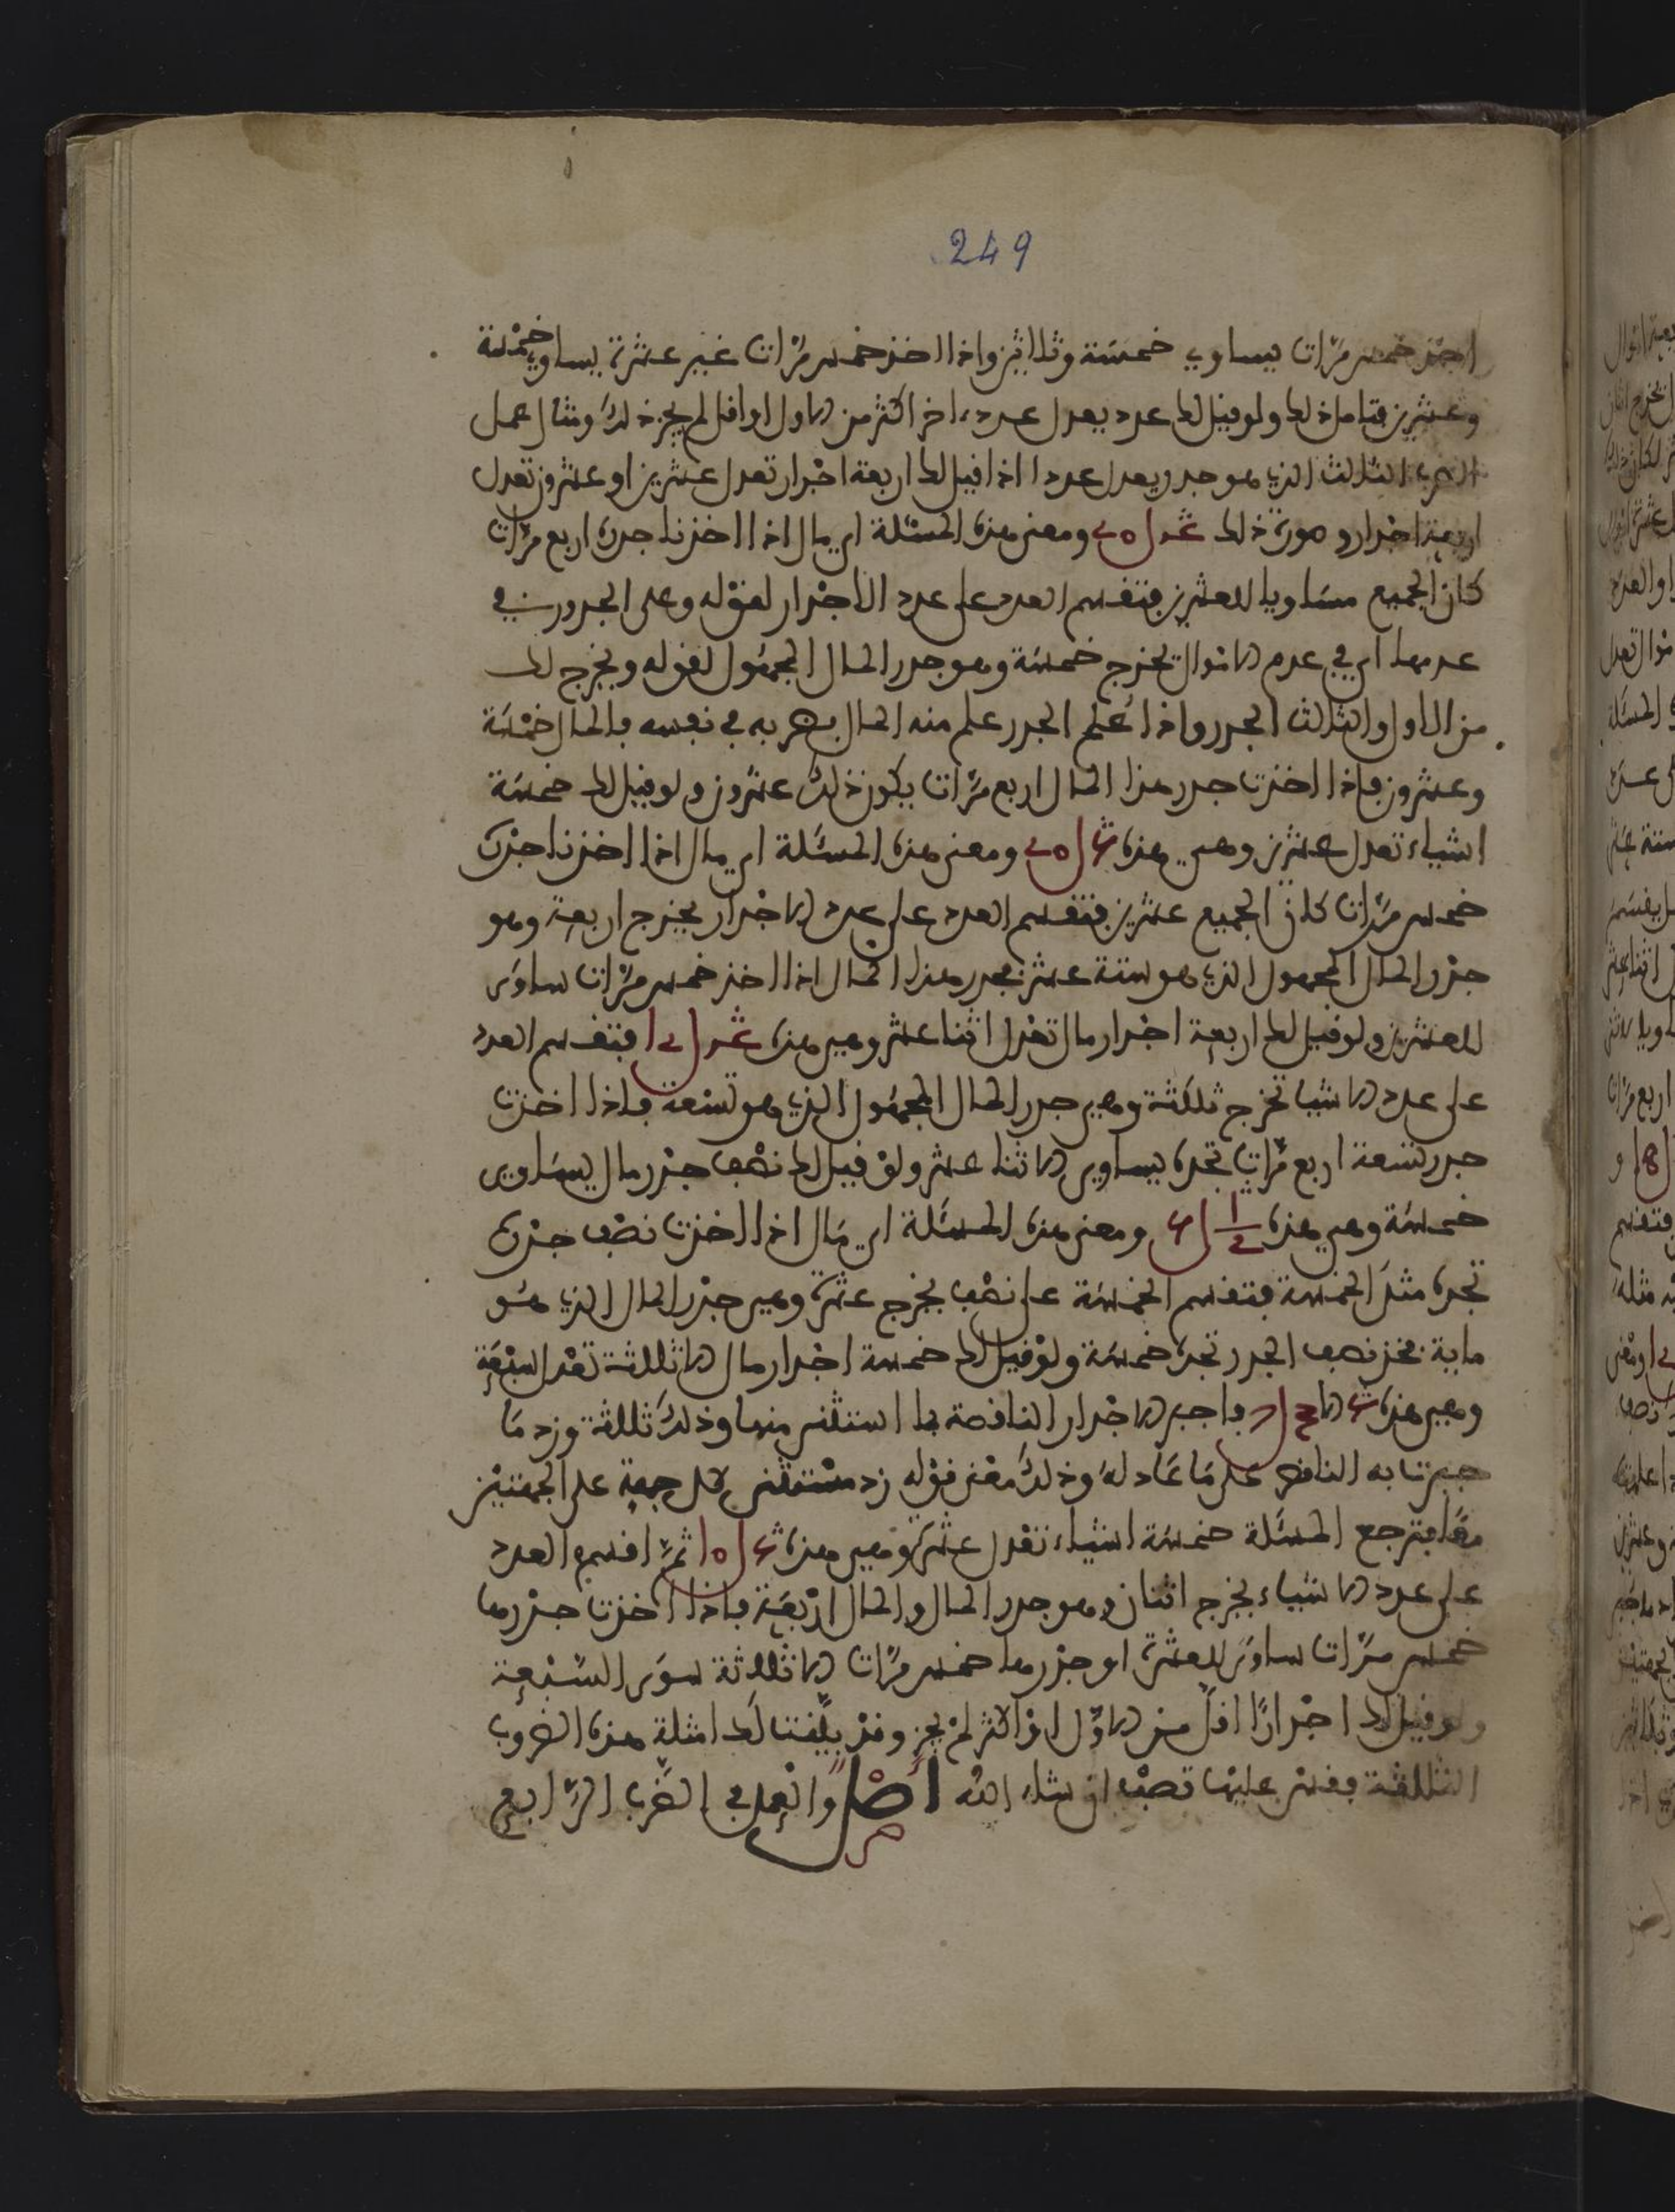 249
اخذ خمس مرات يساوي خمسة وثلاثين واذا اخذ خمس مرات غير عشرة يساوي خمسة
وعشرين فتامل ذلك ولو قيل لك عدد يعدل عددا اخر اكثر من الاول او اقل لم يجز ذلك ومثال عمل
الضرب الثالث الذي هو جدر يعدل عددا اذا قيل لك اربعة اجدار تعدل عشرين او عشرون تعدل
اربعة اجدار وصورة ذلك ومعنى هذه المسئلة اي مال اذا اخذنا جدره اربع مرات
كان الجميع مساويا للعشرين فتقسم العدد على عدد الاجدار لقوله وعلى الجدور في
عدمها اي في عدم الاموال تخرج خمسة وهو جدر المال المجهول لقوله ويخرج لك
من الاول والثالث الجدر واذا علم الجدر علم منه المال بضربه في نفسه فالمال خمسة
وعشرون فاذا اخذت جدر هذا المال اربع مرات يكون ذلك عشرون ولو قيل لك خمسة
اشياء تعدل عشرين وهي هذه ومعنى هذه المسئلة اي مال اذا اخذنا جذره
خمس مرات كان الجميع عشرين فتقسم العدد على عدد الاجدار يخرج اربعة وهو
جذر المال المجهول الذي هو ستة عشر فجدر هذا المال اذا اخذ خمس مرات ساوى
للعشرين ولو قيل لك اربعة اجدار مال تعدل اثنا عشر وهي هذه فتقسم العدد
على عدد الاشيا تخرج ثلثة وهي جدر المال المجهول الذي هو تسعة فاذا اخذت
جدر تسعة اربع مرات تجده يساوي الاثنا عشر ولو قيل لك نصف جذر مال يساوي
خمسة وهي هذه ومعنى هذه المسئلة اي مال اذا اخذت نصف جذره
تجده مثل الخمسة فتقسم الخمسة على نصف يخرج عشرة وهي جذر المال الذي هو
ماية فخذ نصف الجدر تجده خمسة ولو قيل لك خمسة اجدار مال الا ثلثة تعدل سبعة
وهي هذه فاجبر الاجدار الناقصة بما استثني منها وذلك ثلثة وزد ما
جبرت به الناقص على ما عادله وذلك معنى قوله زد مستثنى كل جهة على الجهتين
معا فترجع المسئلة خمسة اشياء تعدل عشرة وهي هذه ثم اقسم العدد
على عدد الاشياء يخرج اثنان وهو جدر المال والمال اربعة فاذا اخذت جذرها
خمس مرات ساوى للعشرة او جذرها خمس مرات الا ثلاثة سوى السبعة
ولو قيل لك اجدارا اقل من الاول او اكثر لم يجز وقد بلغت لك امثلة هذه الضروب
الثلثة فقس عليها تصب ان شاء الله اصل والعمل في الضرب الرابع